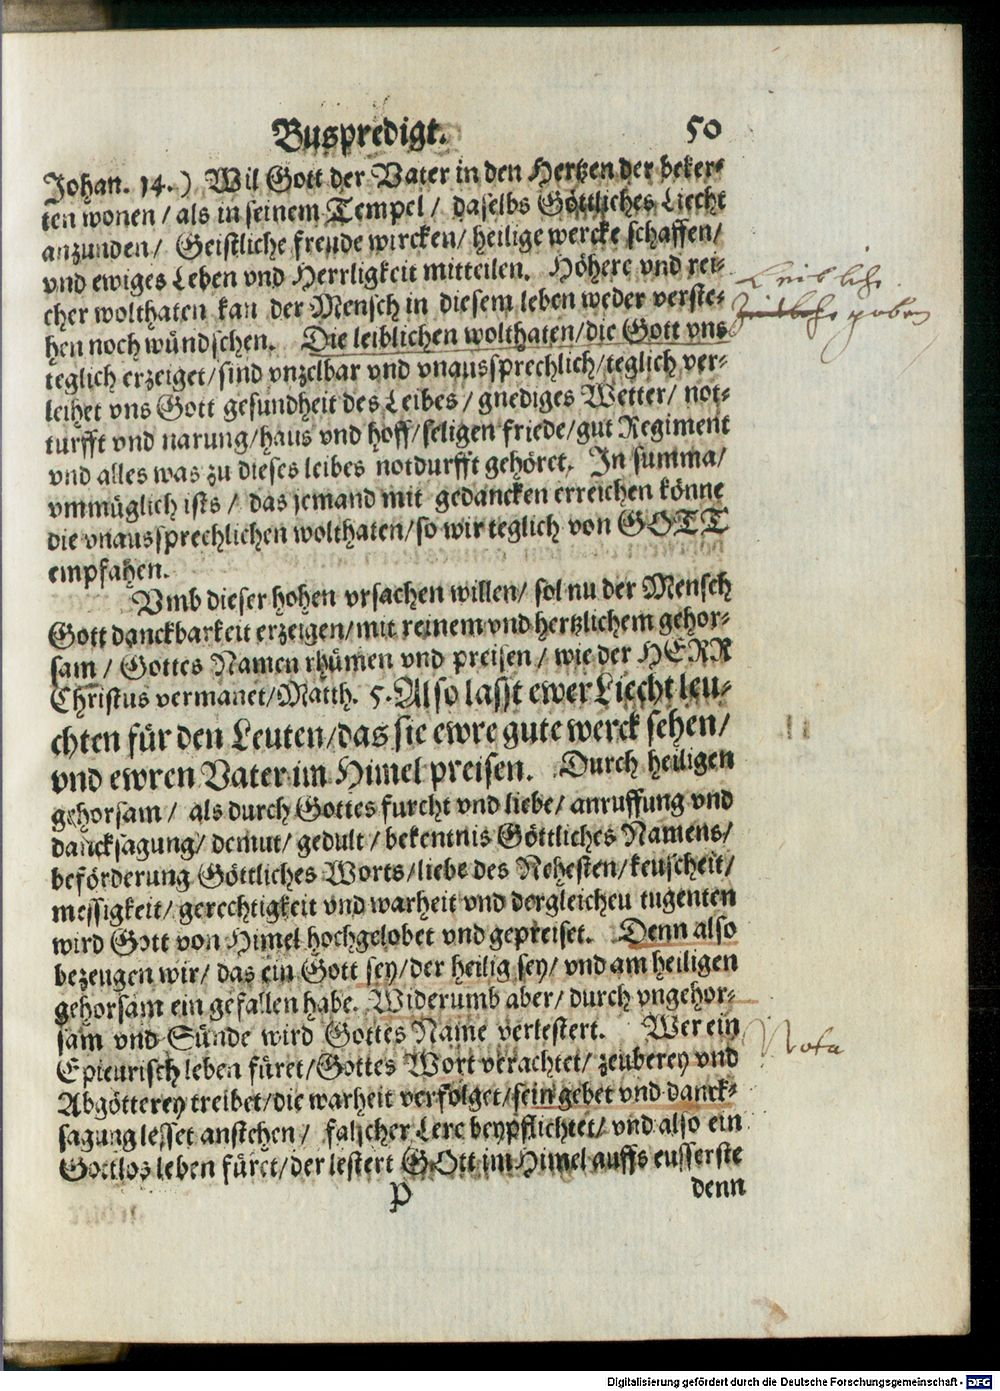 Buspredigt. 50
Johan. 14.) Wil Gott der Vater in den Hertzen der beker-
ten wonen / als in seinem Tempel / daselbs Göttliches Liecht
anzunden / Geistliche freude wircken / heilige wercke schaffen /
vnd ewiges Leben vnd Herrligkeit mitteilen. Höhere vnd rei-
cher wolthaten kan der Mensch in diesem leben weder verste-
hen noch wündschen. Die leiblichen wolthaten / die Gott vns
teglich erzeiget / sind vnzelbar vnd vnaussprechlich / teglich ver-
leihet vns Gott gesundheit des Leibes / gnediges Wetter / not-
turfft vnd narung / haus vnd hoff / seligen friede / gut Regiment
vnd alles was zu dieses leibes notdurfft gehöret. In summa /
vmmüglich ists / das jemand mit gedancken erreichen könne
die vnaussprechlichen wolthaten / so wir teglich von GOTT
empfahen.
Vmb dieser hohen vrsachen willen / sol nu der Mensch
Gott danckbarkeit erzeigen / mit reinem vnd hertzlichem gehor-
sam / Gottes Namen rhümen vnd preisen / wie der HERR
Christus vermanet / Matth. 5. Also lasst ewer Liecht leu-
chten für den Leuten / das sie ewre gute werck sehen /
vnd ewren Vater im Himel preisen. Durch heiligen
gehorsam / als durch Gottes furcht vnd liebe / anruffung vnd
dancksagung / demut / gedult / bekentnis Göttliches Namens /
beförderung Göttliches Worts / liebe des Nehesten / keuscheit /
messigkeit / gerechtigkeit vnd warheit vnd dergleichen tugenten
wird Gott von Himel hochgelobet vnd gepreiset. Denn also
bezeugen wir / das ein Gott sey / der heilig sey / vnd am heiligen
gehorsam ein gefallen habe. Widerumb aber / durch vngehor-
sam vnd Sünde wird Gottes Name verlestert. Wer ein
Epicurisch leben füret / Gottes Wort verachtet / zeuberey vnd
Abgötterey treibet / die warheit verfolget / sein gebet vnd danck-
sagung lesset anstehen / falscher Lere beypflichtet / vnd also ein
Gottlos leben füret / der lestert GOtt im Himel auffs eusserste
P denn
Leibliche
gaben
Nota
Digitalisierung gefördert durch die Deutsche Forschungsgemeinschaft - DFG